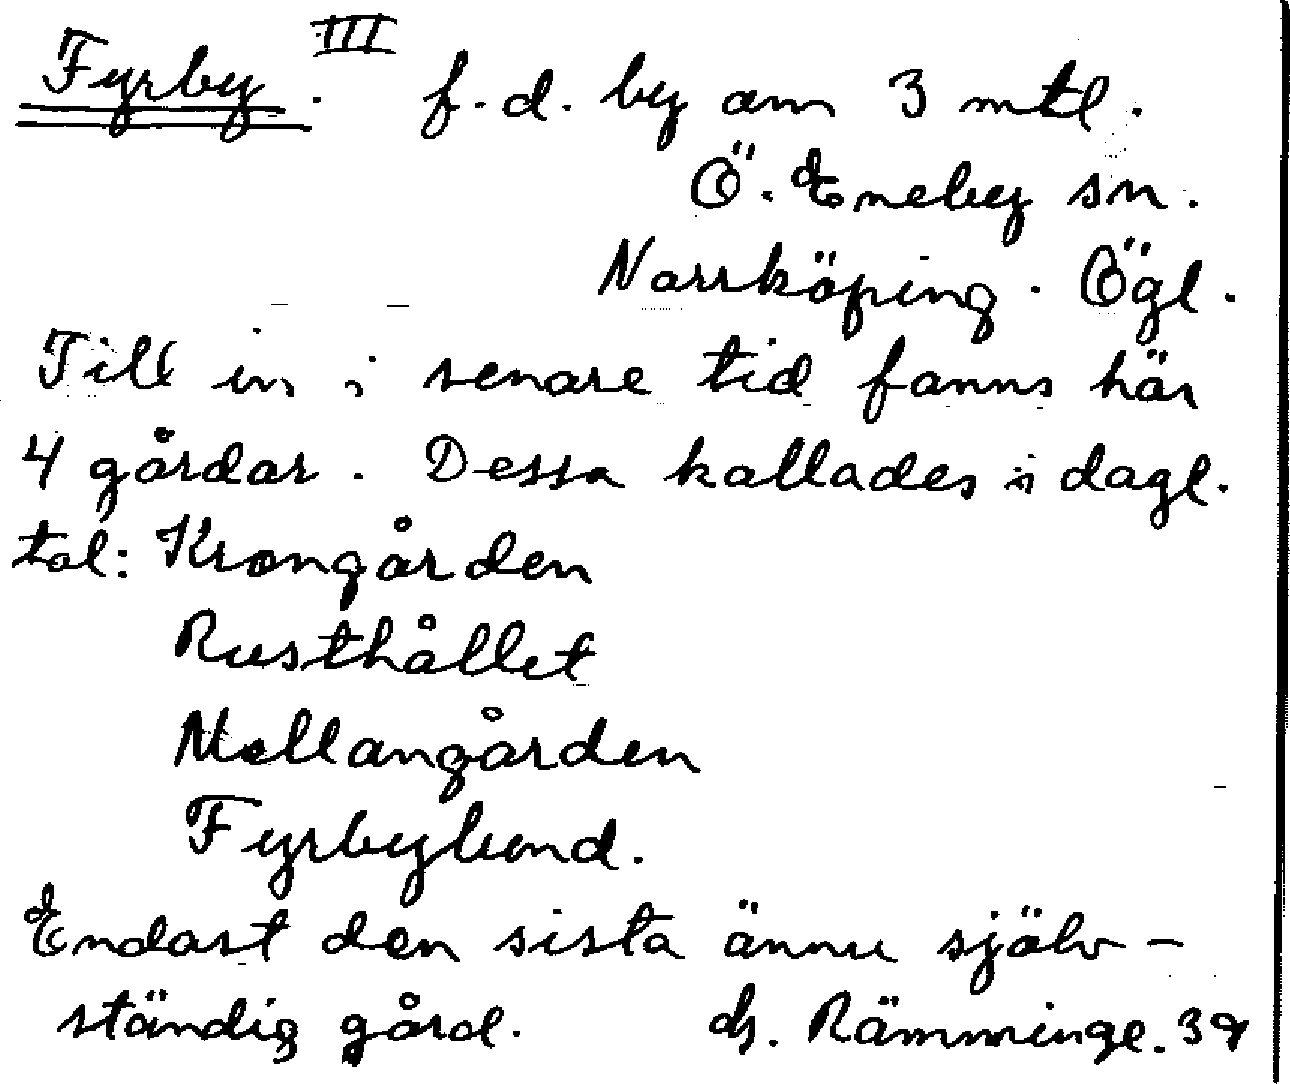 Fyrby. III f.d. by om 3 mtl.
Ö. Eneby sn.
Norrköping. Ögl.
Till in i senare tid fanns här
4 gårdar. Dessa kallades i dagl.
tal: Krongården
Rusthållet
Mellangården
Fyrbylund.
Endast den sista ännu själv-
ständig gård. ds. Rämminge. 39